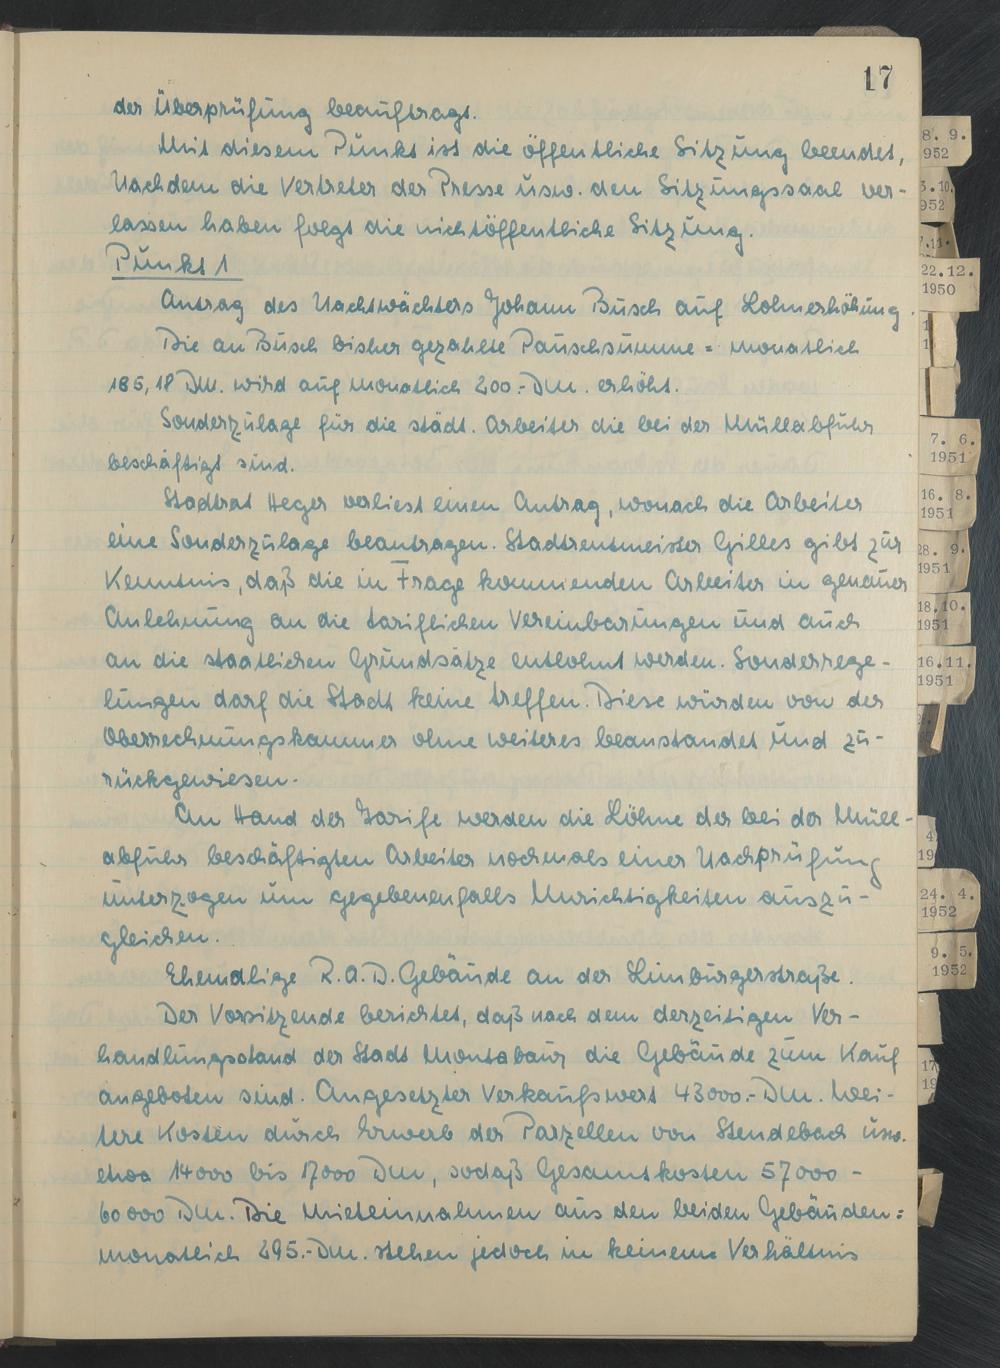 17
der Überprüfung beauftragt.
Mit diesem Punkt ist die öffentliche Sitzung beendet,
Nachdem die Vertreter der Presse usw. den Sitzungssaal ver-
lassen haben folgt die nichtöffentliche Sitzung.
Punkt 1
Antrag des Nachtwächters Johann Busch auf Lohnerhöhung.
Die an Busch bisher gezahlte Pauschsumme = monatlich
185,18 DM. wird auf monatlich 200.- DM. erhöht.
Sonderzulage für die städt. Arbeiter die bei der Müllabfuhr
beschäftigt sind.
Stadtrat Heger verliest einen Antrag, wonach die Arbeiter
eine Sonderzulage beantragen. Stadtrentmeister Gilles gibt zur
Kenntnis, daß die in Frage kommenden Arbeiter in genauer
Anlehnung an die tariflichen Vereinbarungen und auch
an die staatlichen Grundsätze entlohnt werden. Sonderrege-
lungen darf die Stadt keine treffen. Diese würden von der
Oberrechnungskammer ohne weiteres beanstandet und zu-
rückgewiesen.
An Hand der Tarife werden die Löhne der bei der Müll-
abfuhr beschäftigten Arbeiter nochmals einer Nachprüfung
unterzogen um gegebenenfalls Unrichtigkeiten auszu-
gleichen.
Ehemalige R.A.D. Gebäude an der Limburgerstraße.
Der Vorsitzende berichtet, daß nach dem derzeitigen Ver-
handlungsstand der Stadt Montabaur die Gebäude zum Kauf
angeboten sind. Angesetzter Verkaufswert 43000.- DM. Wei-
tere Kosten durch Erwerb der Parzellen von Stendebach usw.
etwa 14000 bis 17000 DM, sodaß Gesamtkosten 57000 -
60000 DM. Die Mieteinnahmen aus den beiden Gebäuden =
monatlich 295.- DM. stehen jedoch in keinem Verhältnis
8. 9.
952
3.10.
952
7.11.
22.12.
1950
7. 6.
1951
16. 8.
1951
28. 9.
1951
18.10.
1951
16.11.
1951
4
19
24. 4.
1952
9. 5.
1952
17
19